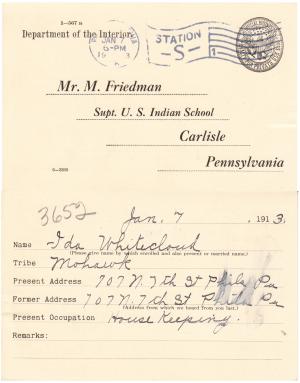 5-567 B
Department of the Interior
JAN 7
6-PM
STATION
-S-
1
Mr. M. Friedman
Supt. U. S. Indian School
Carlisle
Pennsylvania
3652
Jan. 7, 1913.
Name Ida Whitecloud
(Please give name by which enrolled and also present or married name.)
Tribe Mohawk
Present Address 707 N. 7th St Phila Pa
Former Address 707 N. 7th St Phila Pa
(Address from which we heard from you last.)
Present Occupation House Keeping.
Remarks: